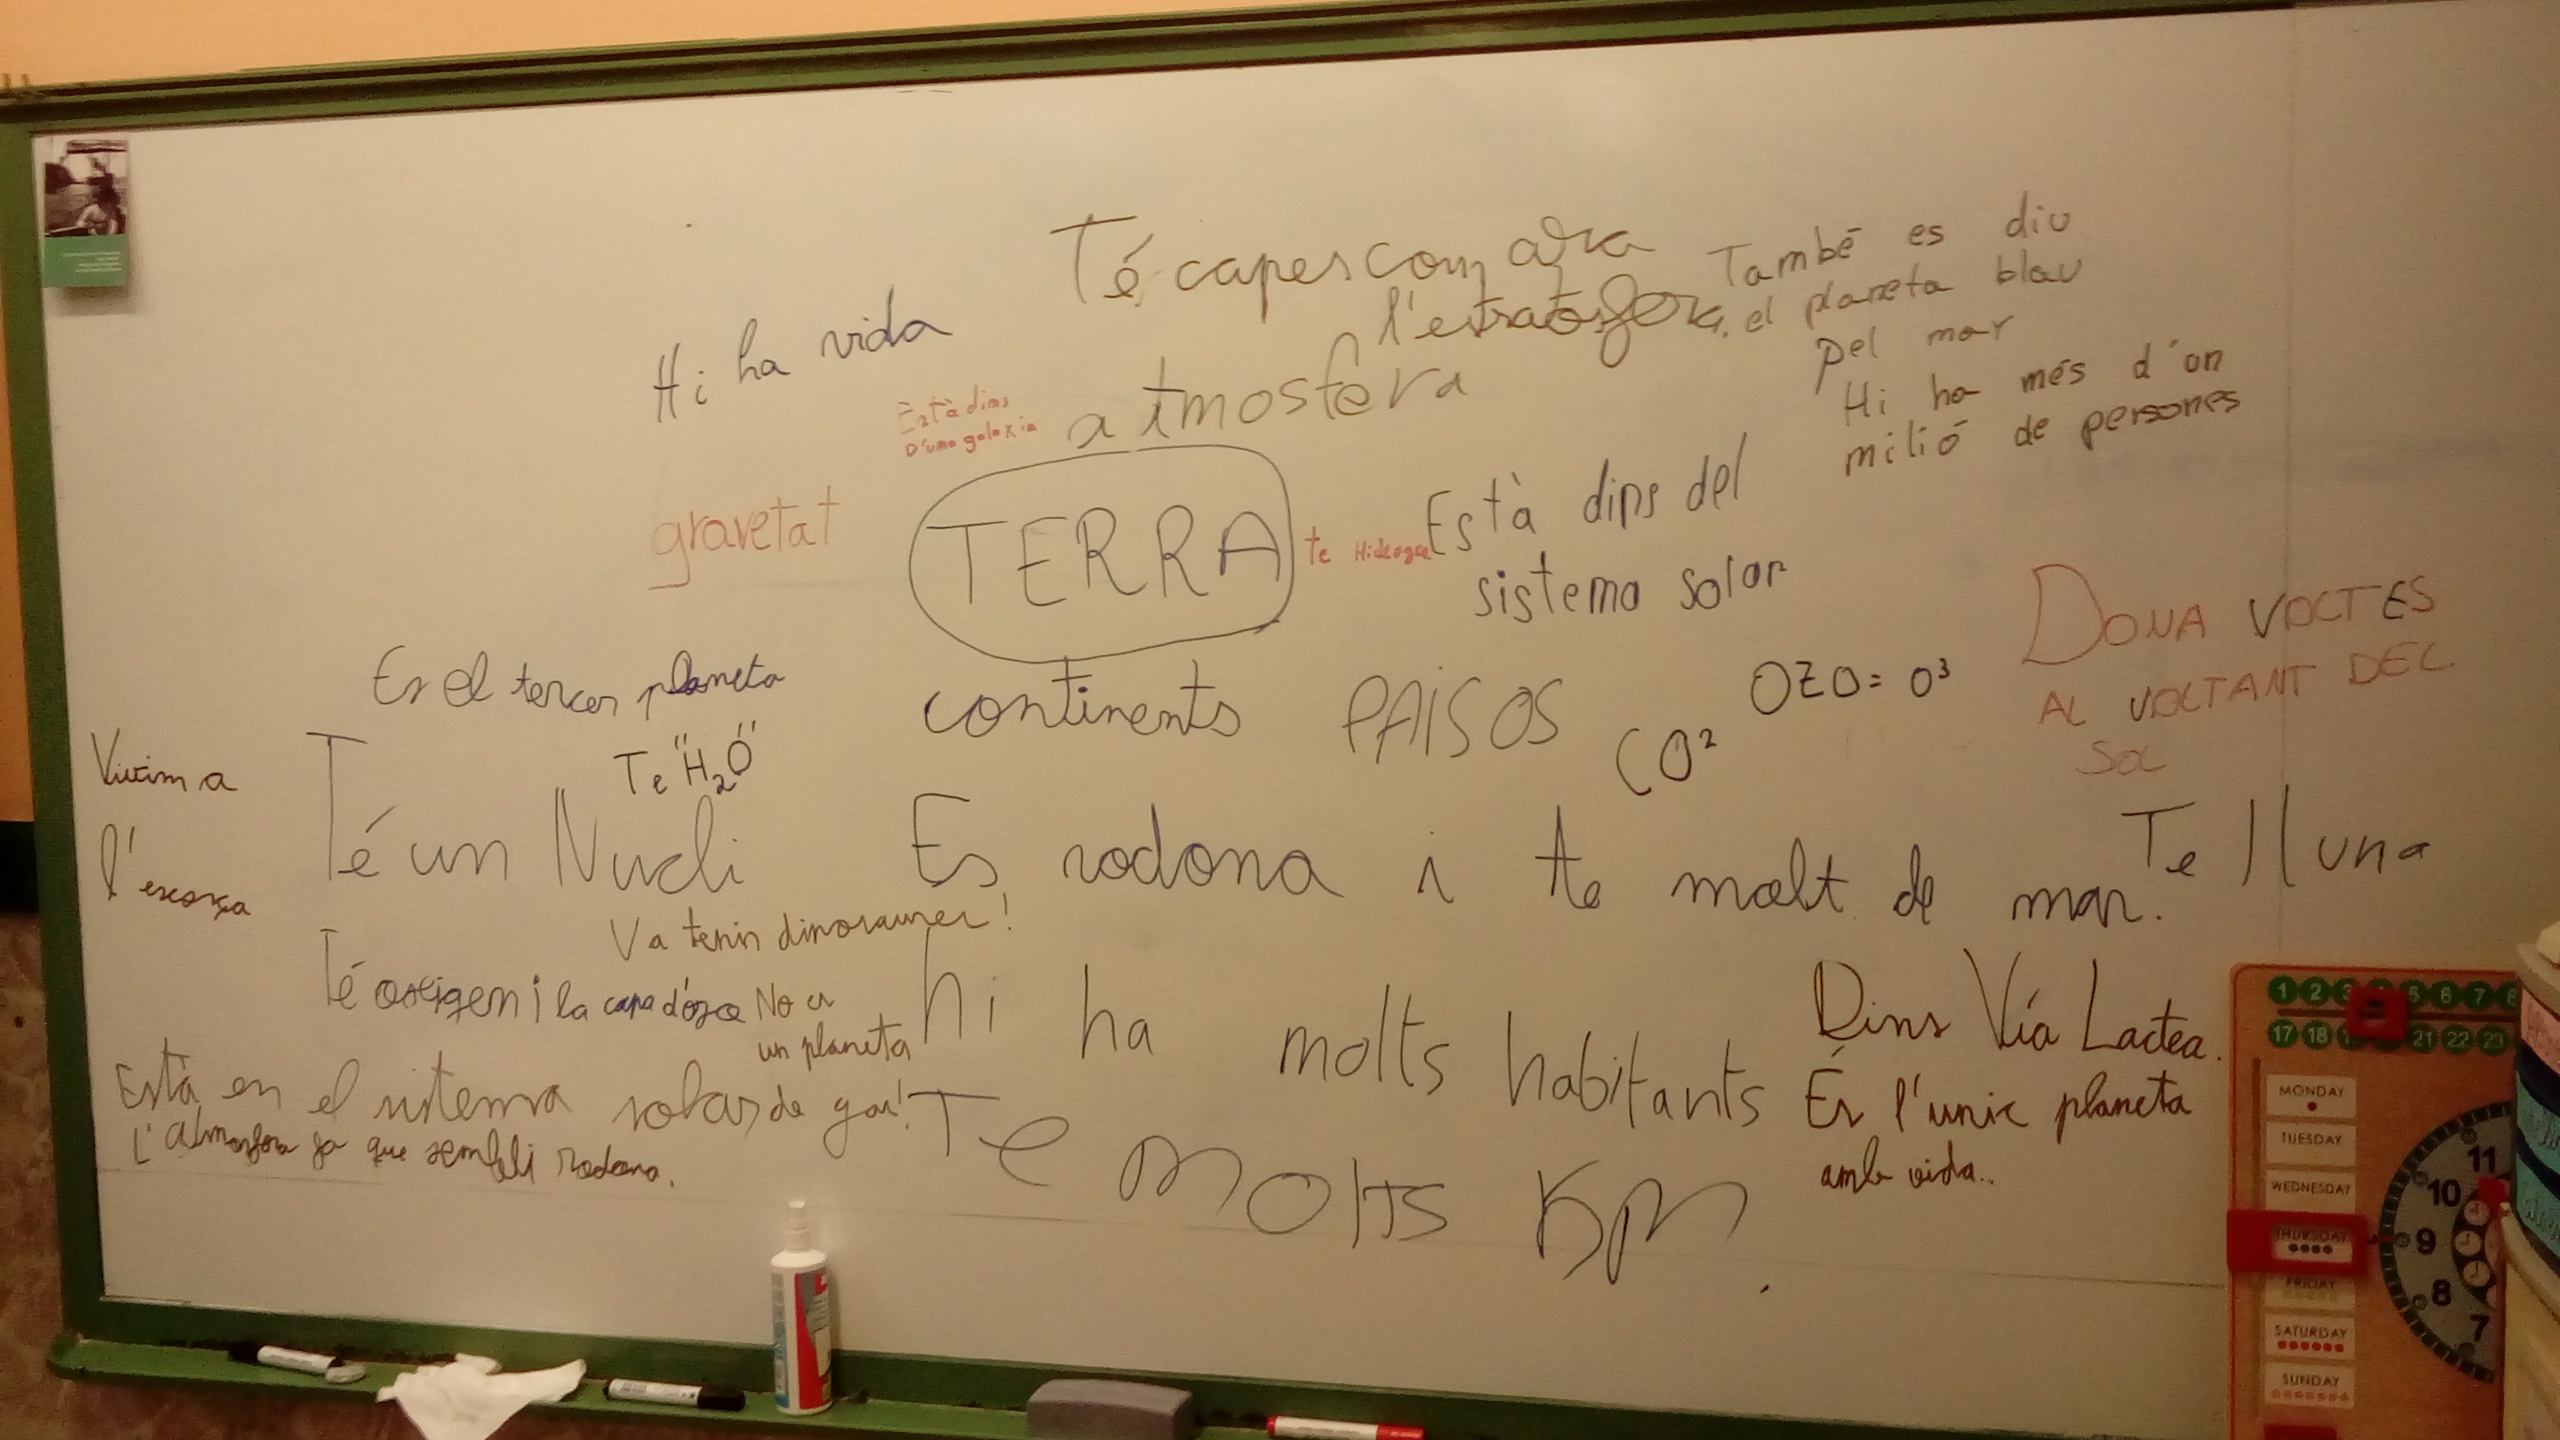 Té capes com ara
l'estratosfera.
També es diu
el planeta blau
pel mar
Hi ha més d'un
milió de persones
Hi ha vida
Està dins
D'una galaxia
atmosfera
gravetat
TERRA
te
Està dins del
sistema solar
DONA VOLTES
AL VOLTANT DEL
SOL
Es el tercer planeta
continents
PAÏSOS
CO²
OZO = O³
Te "H₂O"
Vivim a
l'escorça
Té un Nucli
Es rodona i te molt de mar.
Te lluna
Va tenir dinosaures!
Té oxigen i la capa d'ozo
No es
un planeta
de gas!
hi ha molts habitants
Dins Vía Lactea.
És l'unic planeta
amb vida..
Està en el sistema solar
L'atmosfera fa que sembli rodona.
Te molts Km
1 2 3 5 6 7 8
17 18 21 22 23
MONDAY
TUESDAY
WEDNESDAY
THURSDAY
FRIDAY
SATURDAY
SUNDAY
11
10
9
8
7